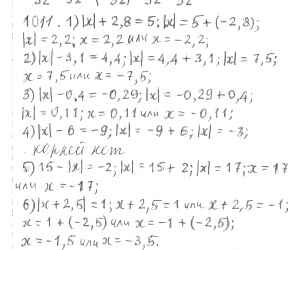 1011. 1) |x| + 2,8 = 5; |x| = 5 + (-2,8);
|x| = 2,2; x = 2,2 или x = -2,2;
2) |x| - 3,1 = 4,4; |x| = 4,4 + 3,1; |x| = 7,5;
x = 7,5 или x = -7,5;
3) |x| - 0,4 = -0,29; |x| = -0,29 + 0,4;
|x| = 0,11; x = 0,11 или x = -0,11;
4) |x| - 6 = -9; |x| = -9 + 6; |x| = -3;
корней нет
5) 15 - |x| = -2; |x| = 15 + 2; |x| = 17; x = 17
или x = -17;
6) |x + 2,5| = 1; x + 2,5 = 1 или x + 2,5 = -1;
x = 1 + (-2,5) или x = -1 + (-2,5);
x = -1,5 или x = -3,5.